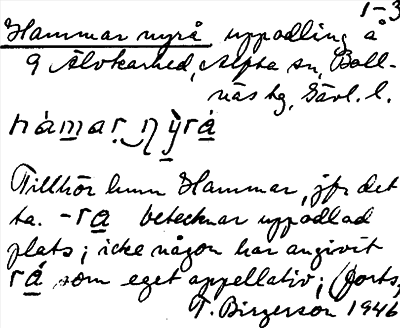 1-3
Hammar nyrå uppodling å
9 Älvkarhed, Alpha sn, Boll-
näs tg, Gävl. l.
hámar ŋỳrá
Tillhör hmn Hammar, jfr det
ta. -ra betecknar uppodlad
plats; icke någon har angivit
rá som eget appellativ; (forts,
T. Birgerson 1946